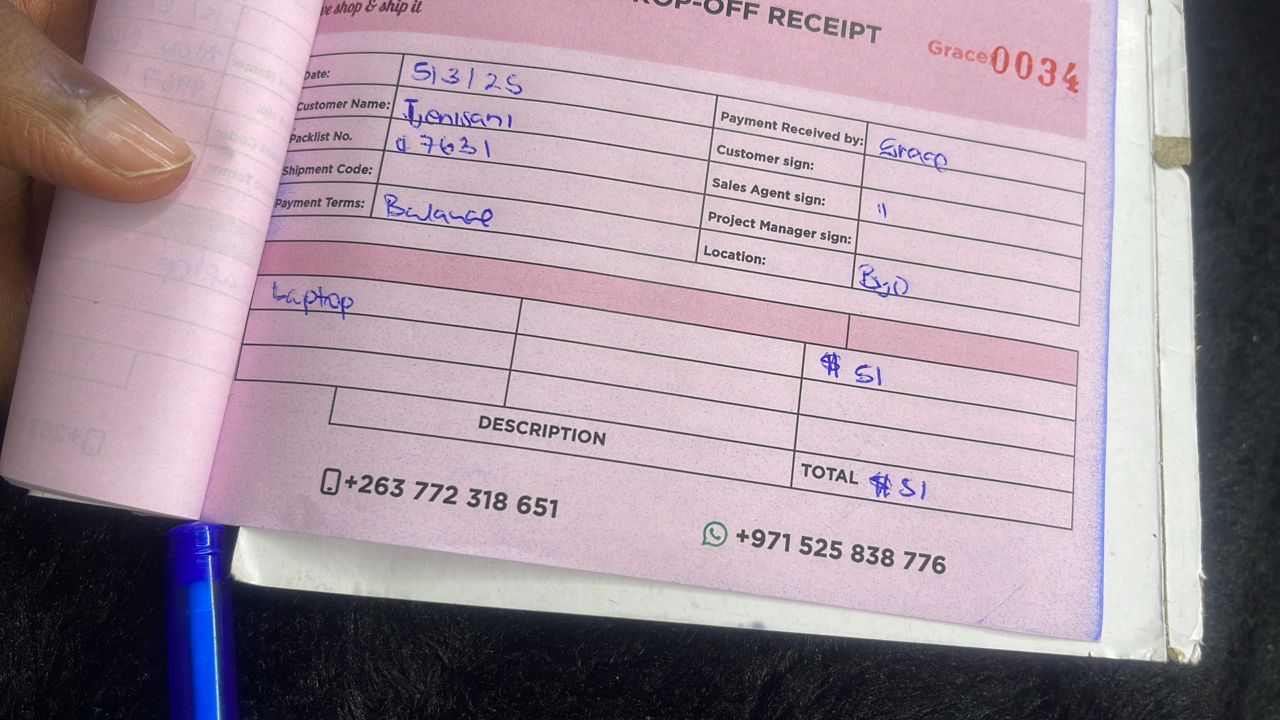 shop & ship it
OP-OFF RECEIPT
Grace 0034
Date: 5/3/25
Customer Name:
Packlist No. 07631
Shipment Code:
Payment Terms: Balance
Payment Received by: Grace
Customer sign:
Sales Agent sign: "
Project Manager sign:
Location: Byo
Laptop
$ 51
DESCRIPTION
TOTAL $51
+263 772 318 651
+971 525 838 776